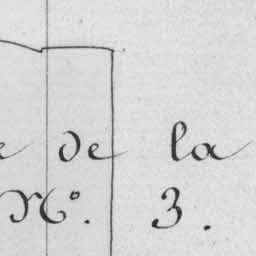 e de la
N°. 3.